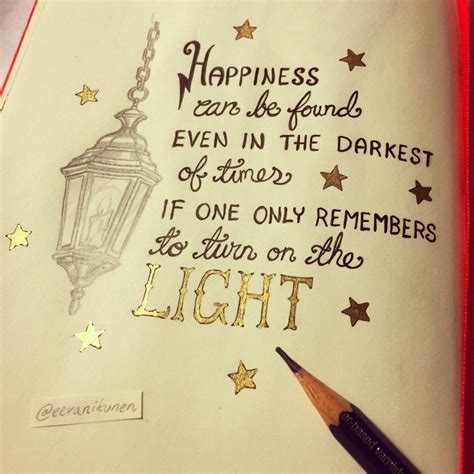 HAPPINESS
can be found
EVEN IN THE DARKEST
of times
IF ONE ONLY REMEMBERS
to turn on the
LIGHT
@eeranikunen